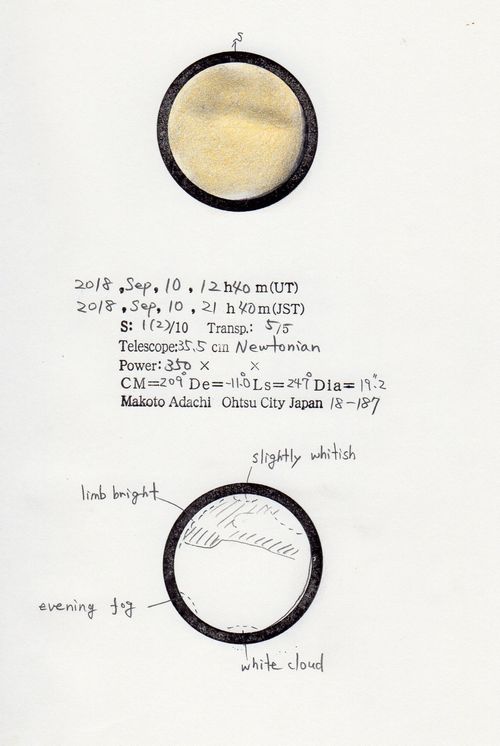 S
2018, Sep, 10, 12 h40 m(UT)
2018, Sep, 10, 21 h40 m(JST)
S: 1(2)/10 Transp.: 5/5
Telescope:35.5 cm Newtonian
Power: 350 × ×
CM=209° De=-11.0° Ls=247° Dia=19."2
Makoto Adachi Ohtsu City Japan 18-187
slightly whitish
limb bright
evening fog
white cloud